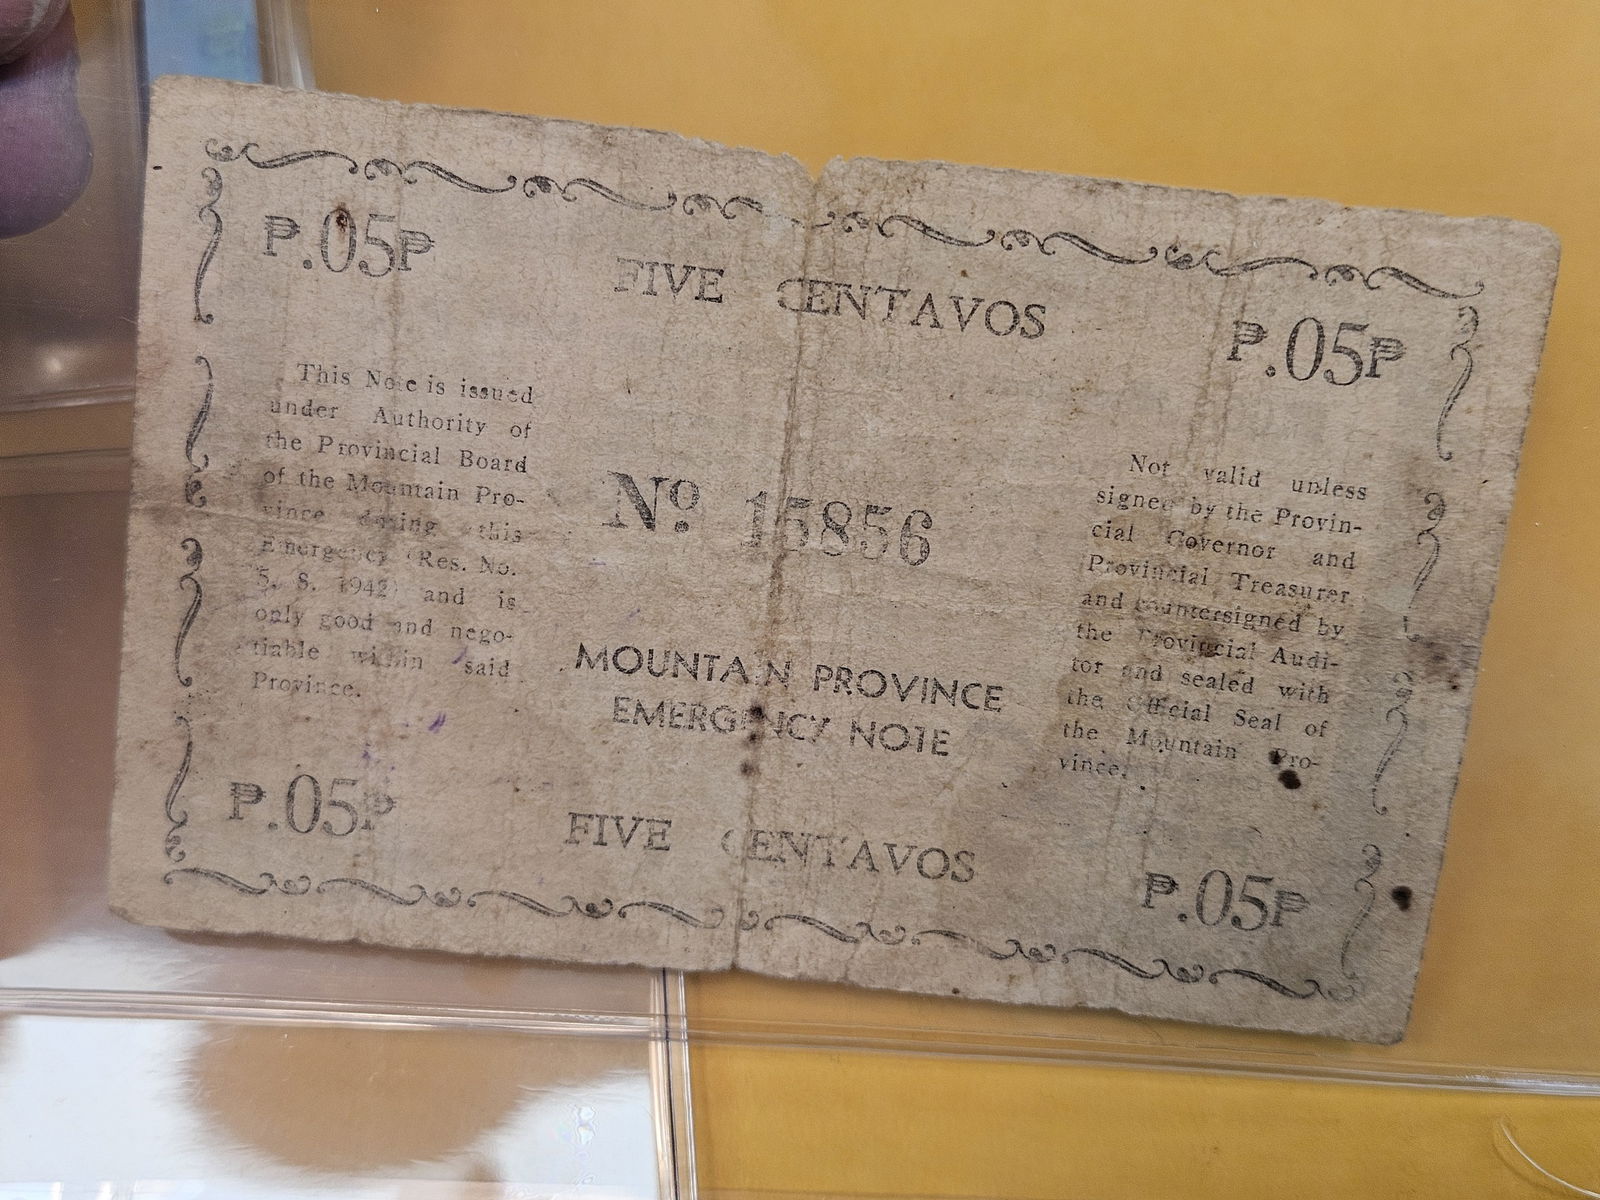 ₱.05₱
FIVE CENTAVOS
₱.05₱
This Note is issued
under Authority of
the Provincial Board
of the Mountain Pro-
vince during this
Emergency (Res. No.
5, S. 1942) and is
only good and nego-
tiable within said
Province.
Nº 15856
MOUNTAIN PROVINCE
EMERGENCY NOTE
Not valid unless
signed by the Provin-
cial Governor and
Provincial Treasurer
and countersigned by
the Provincial Audi-
tor and sealed with
the Official Seal of
the Mountain Pro-
vince.
₱.05₱
FIVE CENTAVOS
₱.05₱